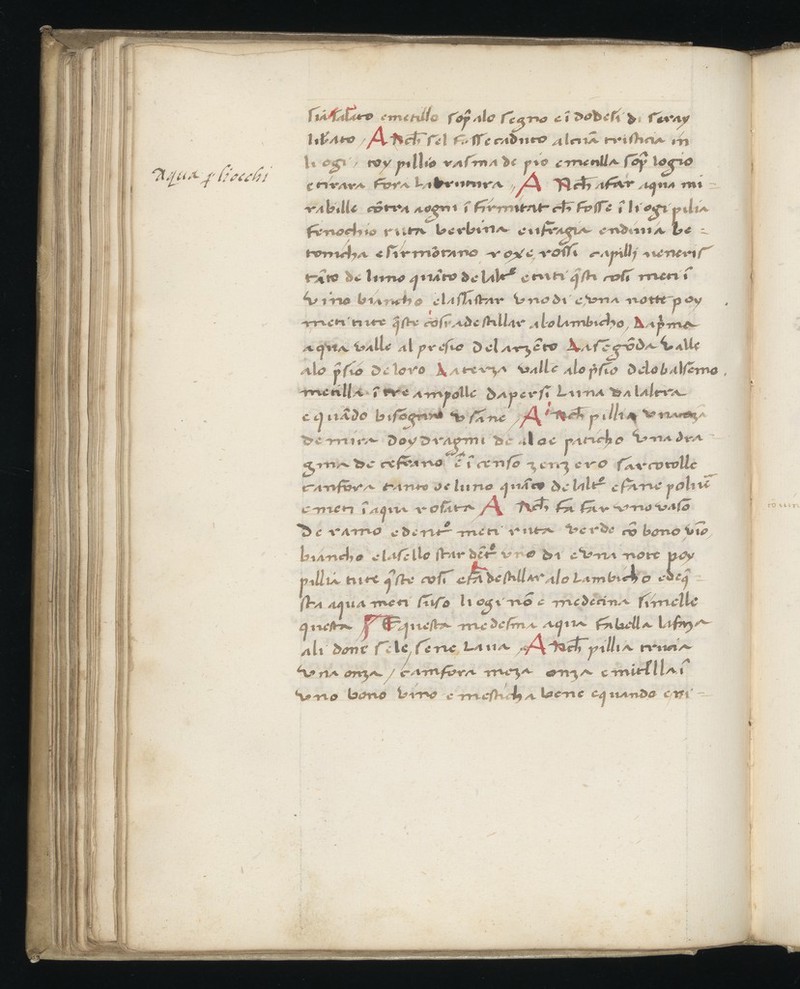 Aqua ꝑ li occhi
sia salato e metillo sop̃ alo segno e ĩ dodesi di seray
liberato / Anch̃ sel fosse caduto alcũa tristicia in
li ogi / toy pillio rasma de pio e metilla sop̃ logio
e tirara fora la brutura / Anch̃ a far aqua mi =
rabille cõtra a ogni ĩ firmitat ch̃ fosse ĩ li ogi pilia
fenochio ruta berbina eufragia endiuia be =
tonicha e sirmõtano roxe rossi capilli ueneris
tãto de luno quãto de laltº e tuti q̃sti cosi meti ĩ
vino biancho e lassistar vno di e vna notte poy
meti tute q̃ste cose a destillar alo lambicho / La p̃ma
aqua valle al presio del arzẽto La segõda valle
alo p̃sio de loro La terza valle alo p̃sio delo balsemo .
metilla ĩ tre ampolle da persi luna da laltra
e quãdo bisogna vsane / Anch̃ pillia vna onza
de mira doy dragmi de aloe paticho vna dra =
gma de cefrano ĩcenso zenzero sarcocolle
canfora tanto de luno quãto de laltº e fane poluẽ
e meti ĩ aqua rosata Anch̃ fa far vno vaso
de ramo e dentº meti ruta verde cõ bono vĩo
biancho e lasello star dẽtº vno di e vna note poy
pillia tute q̃ste cosi e fa destillar alo lambicho e de q̃ =
sta aqua meti suso li ogi nõ e medecina simelle
questa / E questa medesma aqua fa bella la faza
ali done sele sene laua / Anch̃ pillia trucia
vna onza / camfora meza onza e mitilla ĩ
vno bono vino e mesticha bene e quando eni =